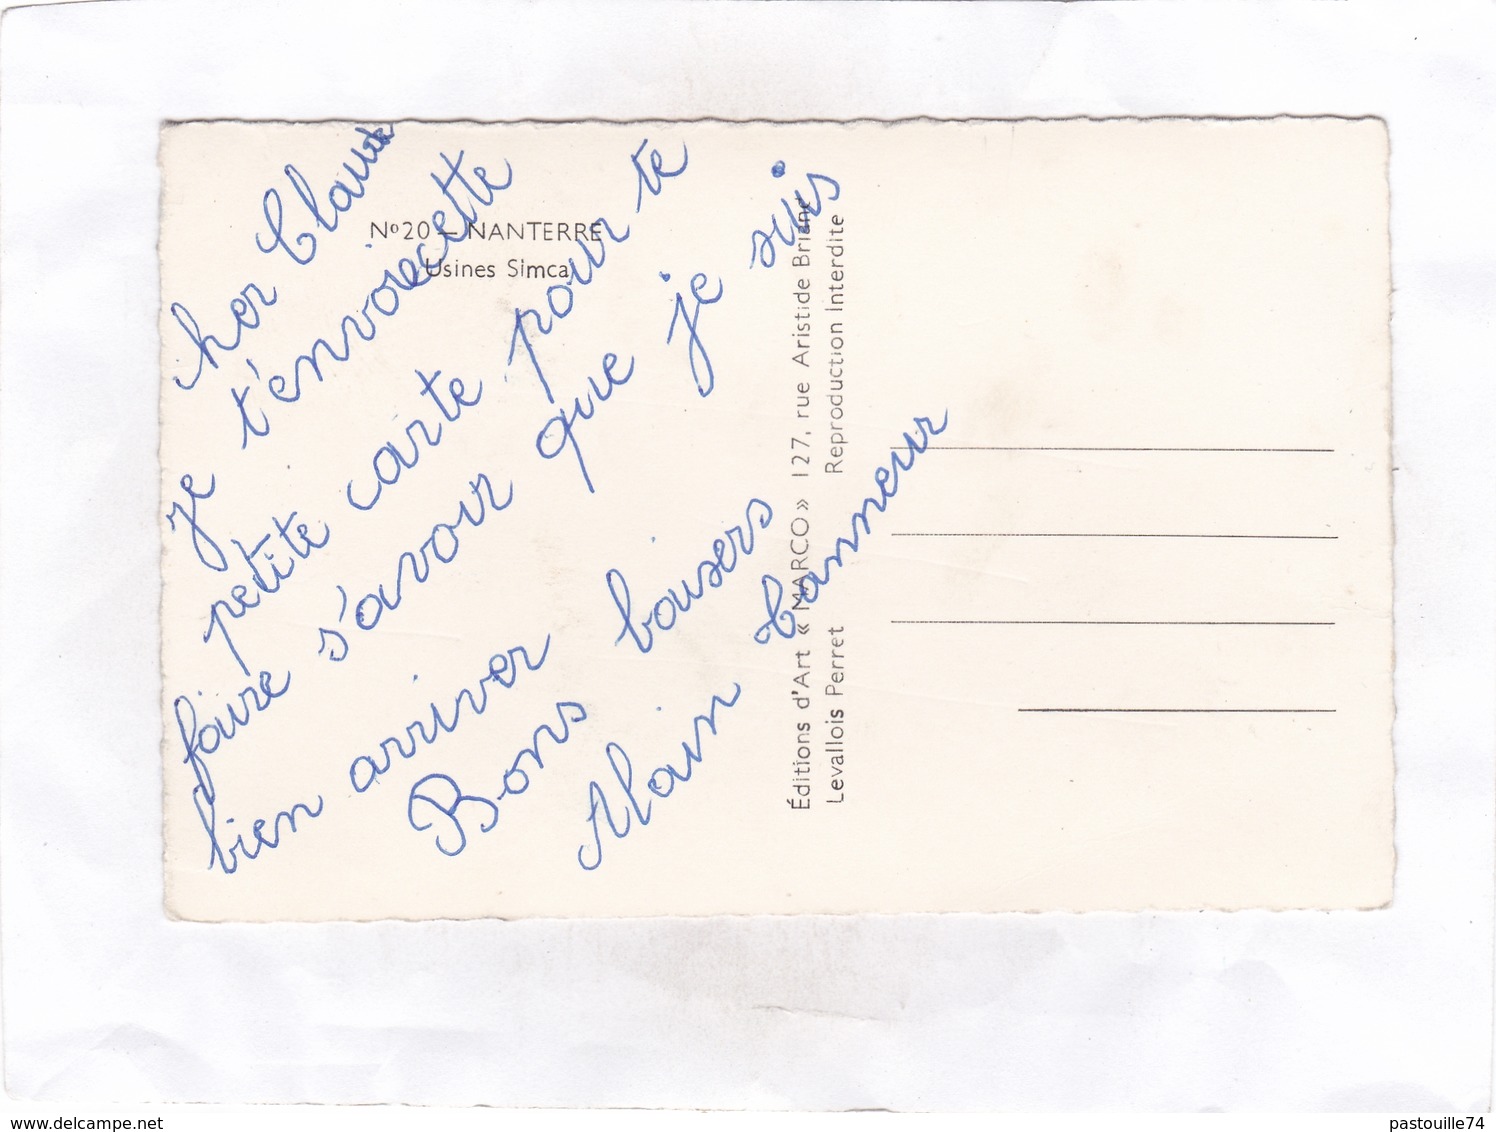 cher Claude
je t'envoie cette
petite carte pour te
faire s'avoir que je suis
bien arriver
Bons bousers
Alain Canneur
Nº20 — NANTERRE
Usines Simca
Éditions d'Art « MARCO » 127, rue Aristide Briand
Levallois Perret Reproduction Interdite
www.delcampe.net
pastouille74